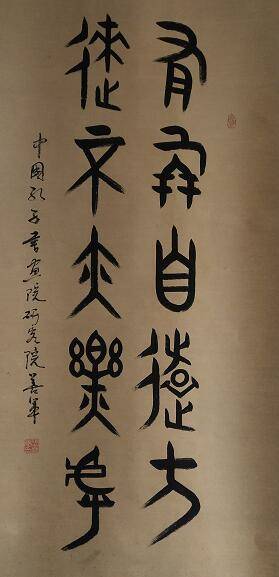 有朋自遠方
來不亦樂乎
中國孔子書畫院研究院善軍